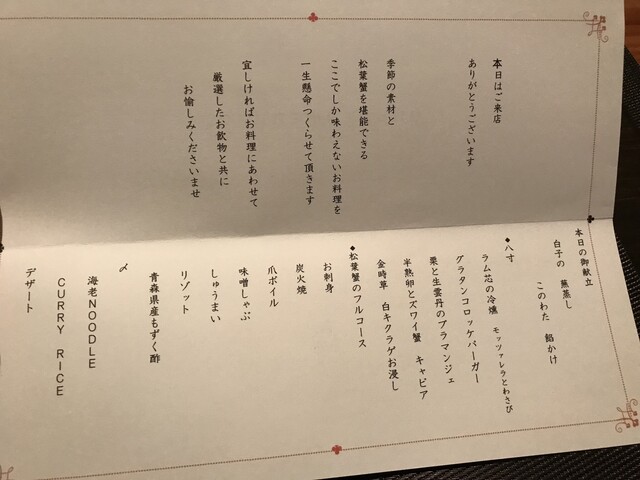 本日はご来店
ありがとうございます
季節の素材と
松葉蟹を堪能できる
ここでしか味わえないお料理を
一生懸命つくらせて頂きます
宜しければお料理にあわせて
厳選したお飲物と共に
お愉しみくださいませ
本日の御献立
白子の 蕪蒸し
このわた 餡かけ
◆八寸
ラム芯の冷燻 モッツァレラとわさび
グラタンコロッケバーガー
栗と生雲丹のブラマンジェ
半熟卵とズワイ蟹 キャビア
金時草 白キクラゲお浸し
◆松葉蟹のフルコース
お刺身
炭火焼
爪ボイル
味噌しゃぶ
しゅうまい
リゾット
青森県産もずく酢
〆
海老NOODLE
CURRY RICE
デザート